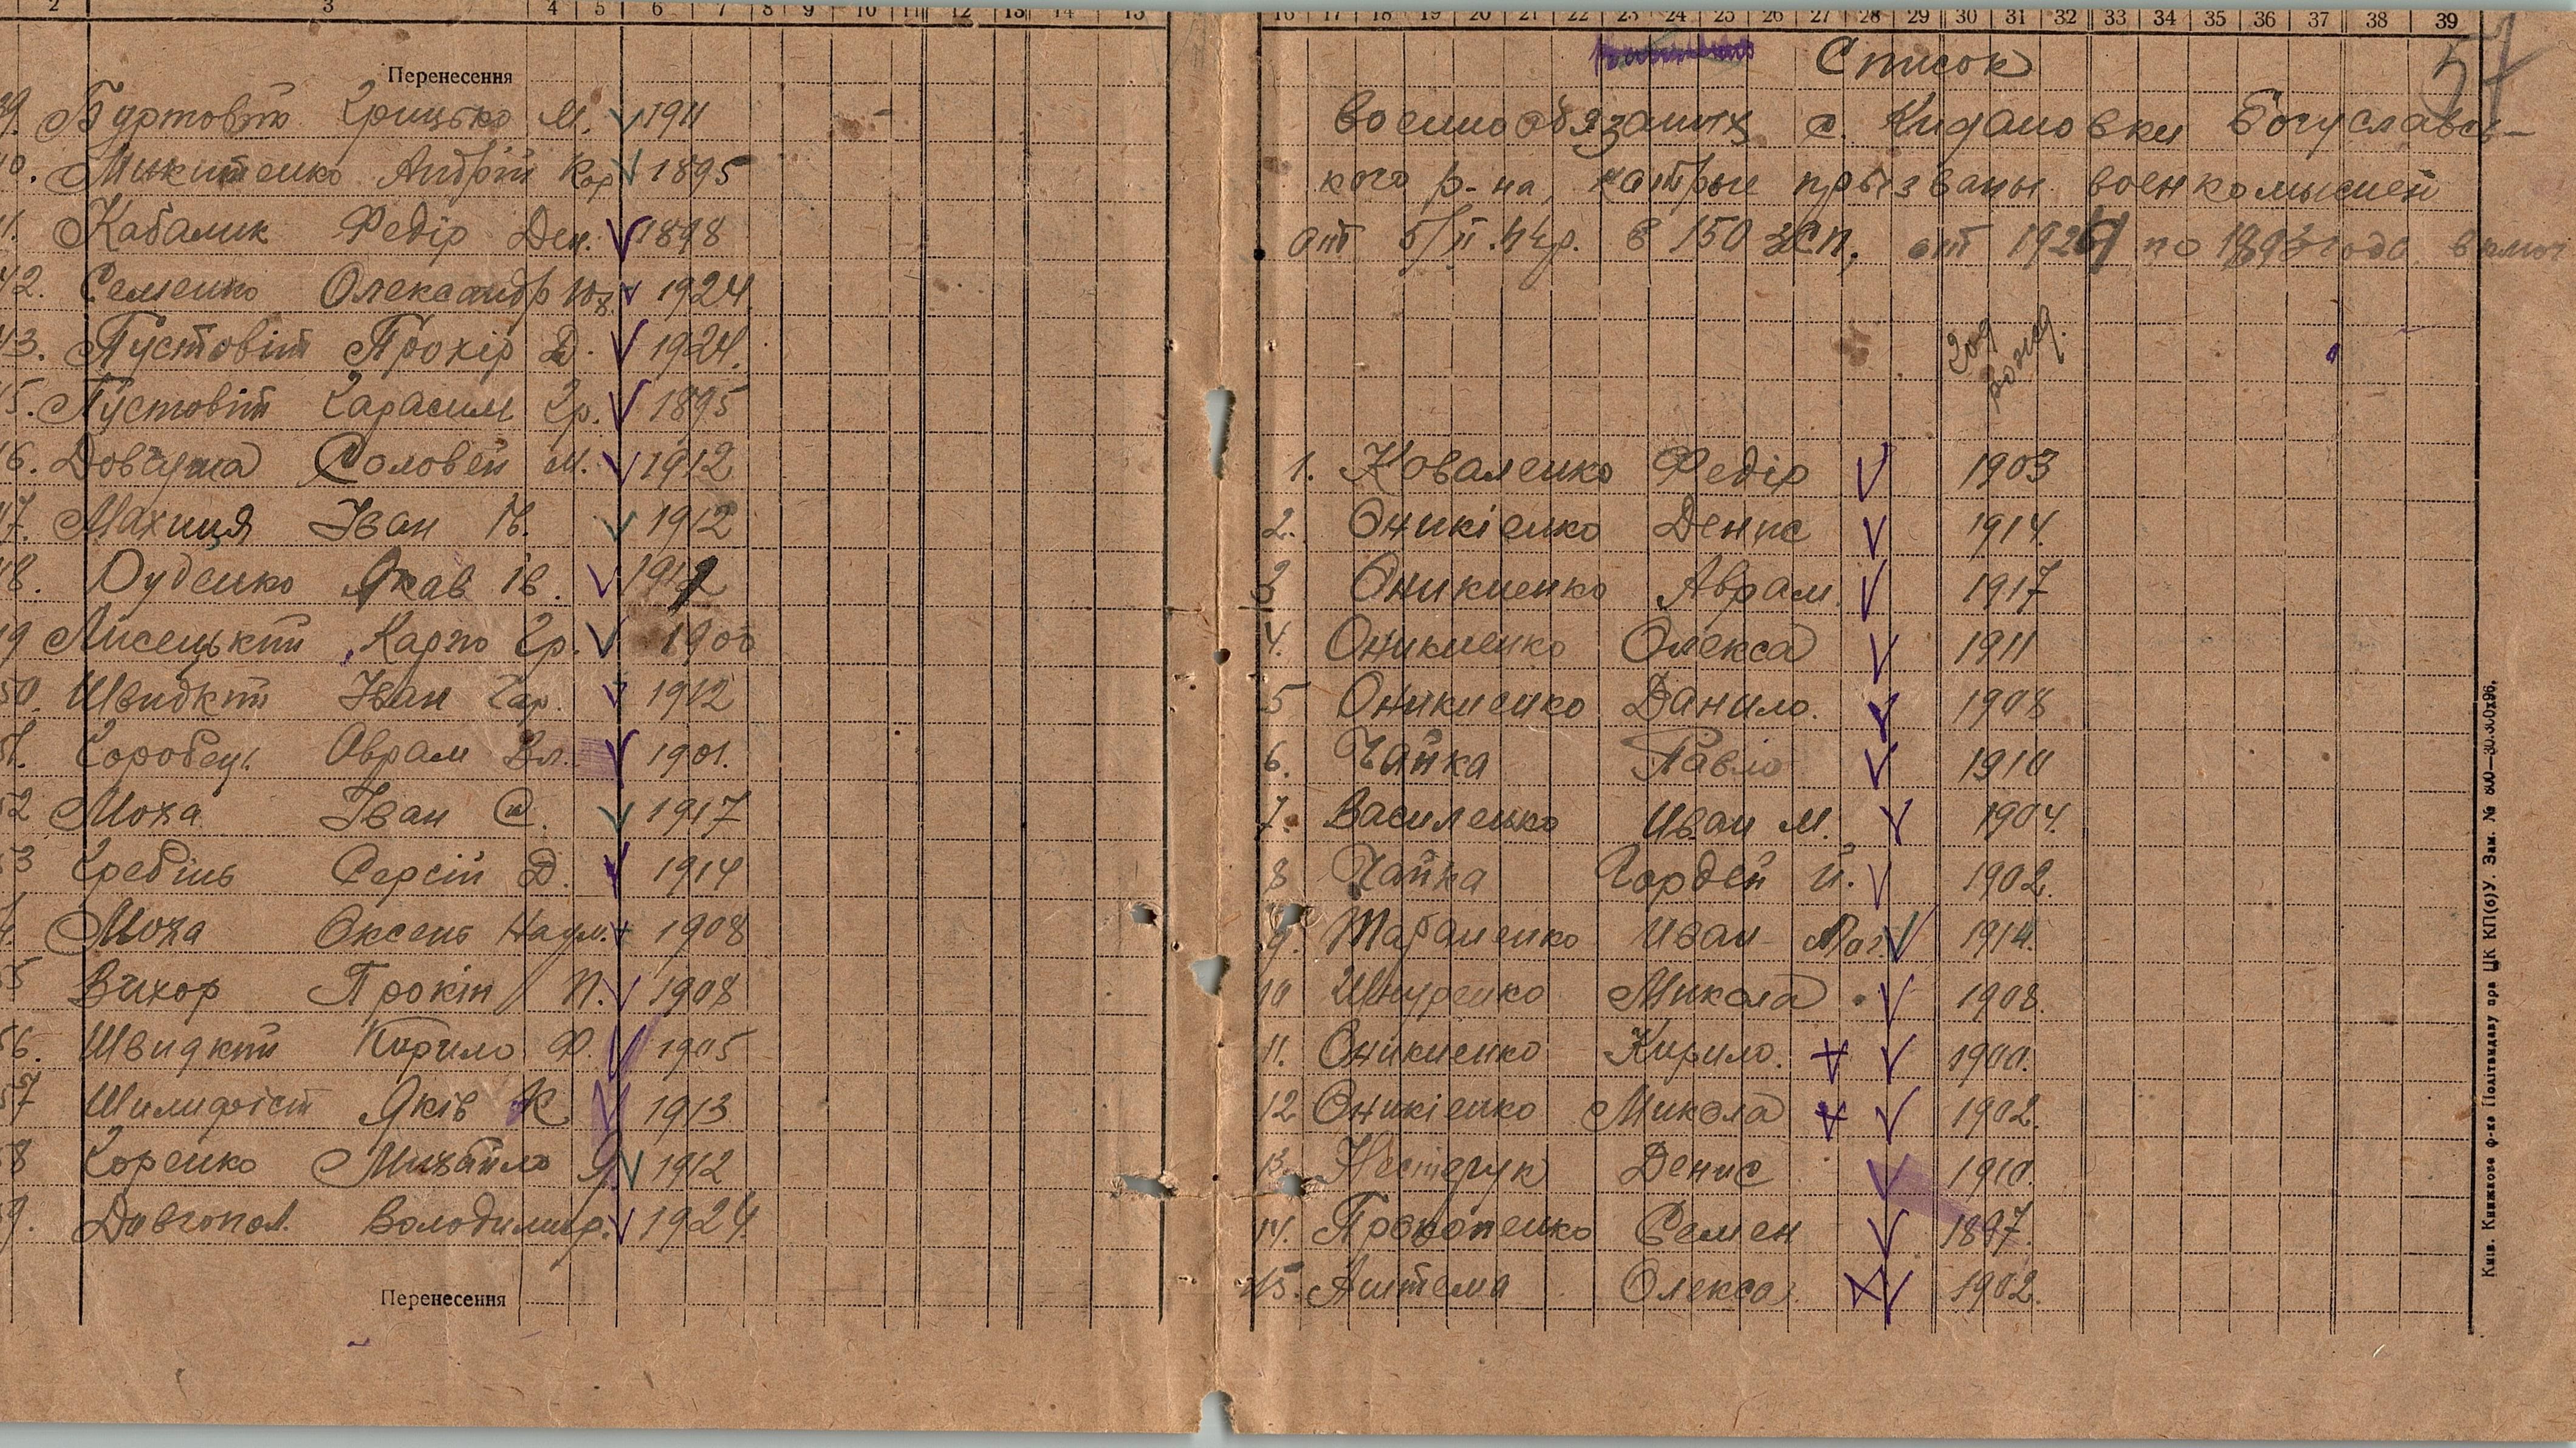 2 3 4 5 6 7 8 9 10 11 12 13 14 15
Перенесення
39. Буртовий Грицько М. 1911
40. Микитенко Андрій Кор 1895
41. Кабалик Федір Дем. 1898
42. Семенко Олександр Юх. 1924
43. Пустовіт Прохір Д. 1924.
45. Пустовіт Гарасим Гр. 1895
46. Довгуша Соловей М. 1912
47. Махиня Іван К. 1912
48. Дуденко Якав Ів. 1912
49 Лисецький Карпо Гр. 1900
50. Швидкий Іван Гар. 1912
51. Горобець Оврам Вл. 1901.
52 Моха Іван С. 1917
53 Гребінь Сергій Д. 1914
54. Моха Оксень Наум. 1908
55 Вихор Прокіп П. 1908
56. Швидкий Кирило Ф. 1905
57 Шилихвіст Яків К 1913
58 Горенко Михайло Я. 1912
59. Довгопол. Володимир. 1924.
Перенесення
16 17 18 19 20 21 22 23 24 25 26 27 28 29 30 31 32 33 34 35 36 37 38 39
57
Список
военнообязаних с. Кидановки Богуславсь-
кого р-на, катрые прызваны военкомысией
от 5/II.44р. в 150 зсп, от 1926 по 1893 года включ
год
рожд.
1. Коваленко Федір 1903
2. Оникієнко Денис 1914.
3 Оникиенко Аврам. 1917
4. Оникиенко Олекса 1911
5 Оникиенко Данило. 1908
6. Чайка Павло 1910
7. Василенко Иван М. 1904.
8 Чайка Гордей И. 1902.
9. Тараненко Иван 1914.
10 Шнуренко Микола 1908.
11. Оникиенко Кирило. 1900.
12 Оникієнко Микола 1902.
13. Нестерук Денис 1910.
14. Прокопенко Семен 1897.
15. Антема Олекса. 1902.
Київ. Книжкова ф-ка Політвидаву при ЦК КП(б)У. Зам. №